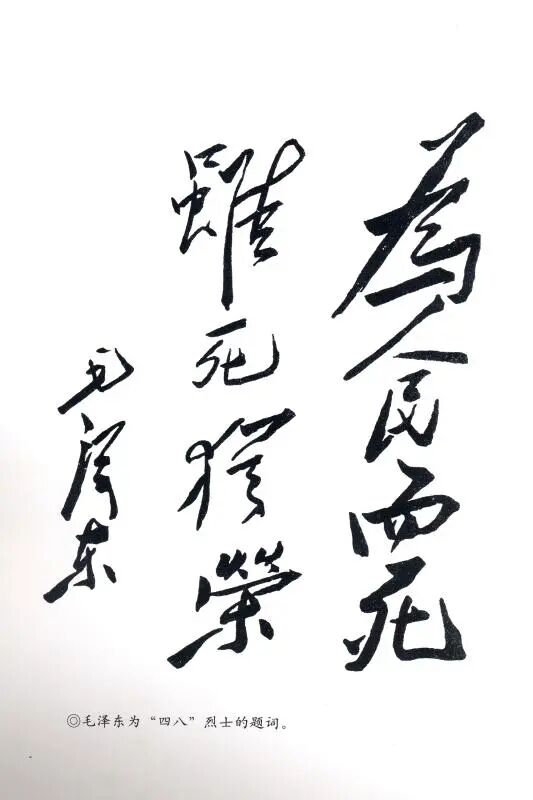 為人民而死
雖死猶榮
毛澤东
◎毛泽东为“四八”烈士的题词。